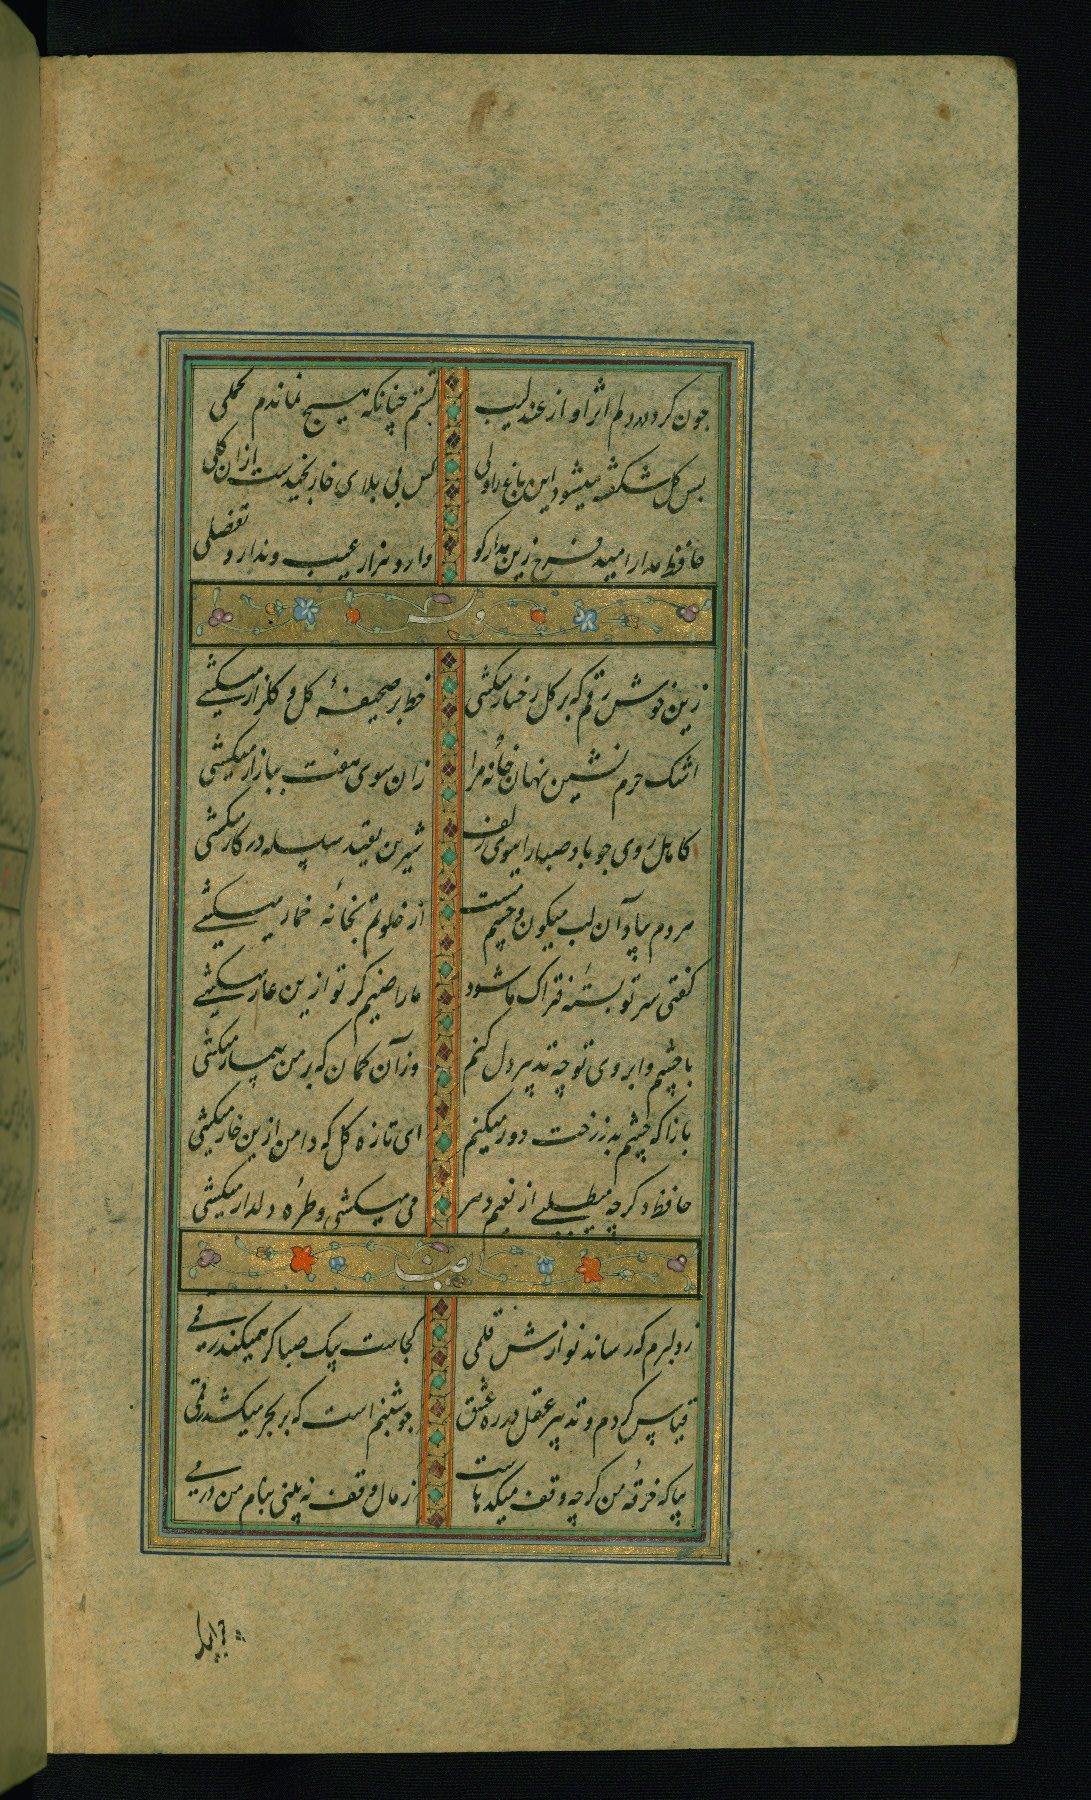 چون کرد در دلم اثر آواز عندلیب گشتم چنانکه هیچ نماندم تحملی
بس گل شکفته میشود این باغ را ولی کس بی بلای خار نچیدست ازان گلی
حافظ مدار امید فرح زین مدار کو دارد هزار عیب و ندارد تفضلی
وله
زین خوش رقم که بر گل رخسار میکشی خط بر صحیفهٔ گل و گلزار میکشی
اشک حرم نشین نهانخانهٔ مرا زان سوی هفت ببازار میکشی
کاهل روی چو باد صبا را ببوی زلف شیرین بقید سلسله در کار میکشی
هر دم بیاد آن لب میگون و چشم مست از خلوتم بخانهٔ خمار میکشی
گفتی سر تو بستهٔ فتراک ما شود ما راضییم گر تو ازین عار میکشی
با چشم و ابروی تو چه تدبیر دل کنم وز آن کمان که بر من بیمار میکشی
بازآ که چشم بد ز رخت دور میکنم ای تازه گل که دامن ازین خار میکشی
حافظ دگر چه میطلبی از نعیم دهر می میکشی و طرهٔ دلدار میکشی
ایضا
ز دلبرم که رساند نوازش قلمی کجاست پیک صبا گر همیکند کرمی
قیاس کردم و تدبیر عقل در ره عشق چو شبنم است که بر بحر میکشد رقمی
بیا که خرقهٔ من گرچه وقف میکدهاست ز مال وقف نه بینی بنام من درمی